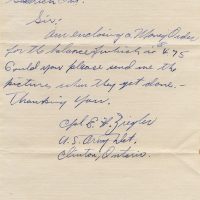 Sir:
Am enclosing a Money Order
for the balance which is 4.75
Could you please send me the
picture, when they get done. -
Thanking you.
Cpl E. W. Ziegler
U.S. Army Det.
Clinton, Ontario.